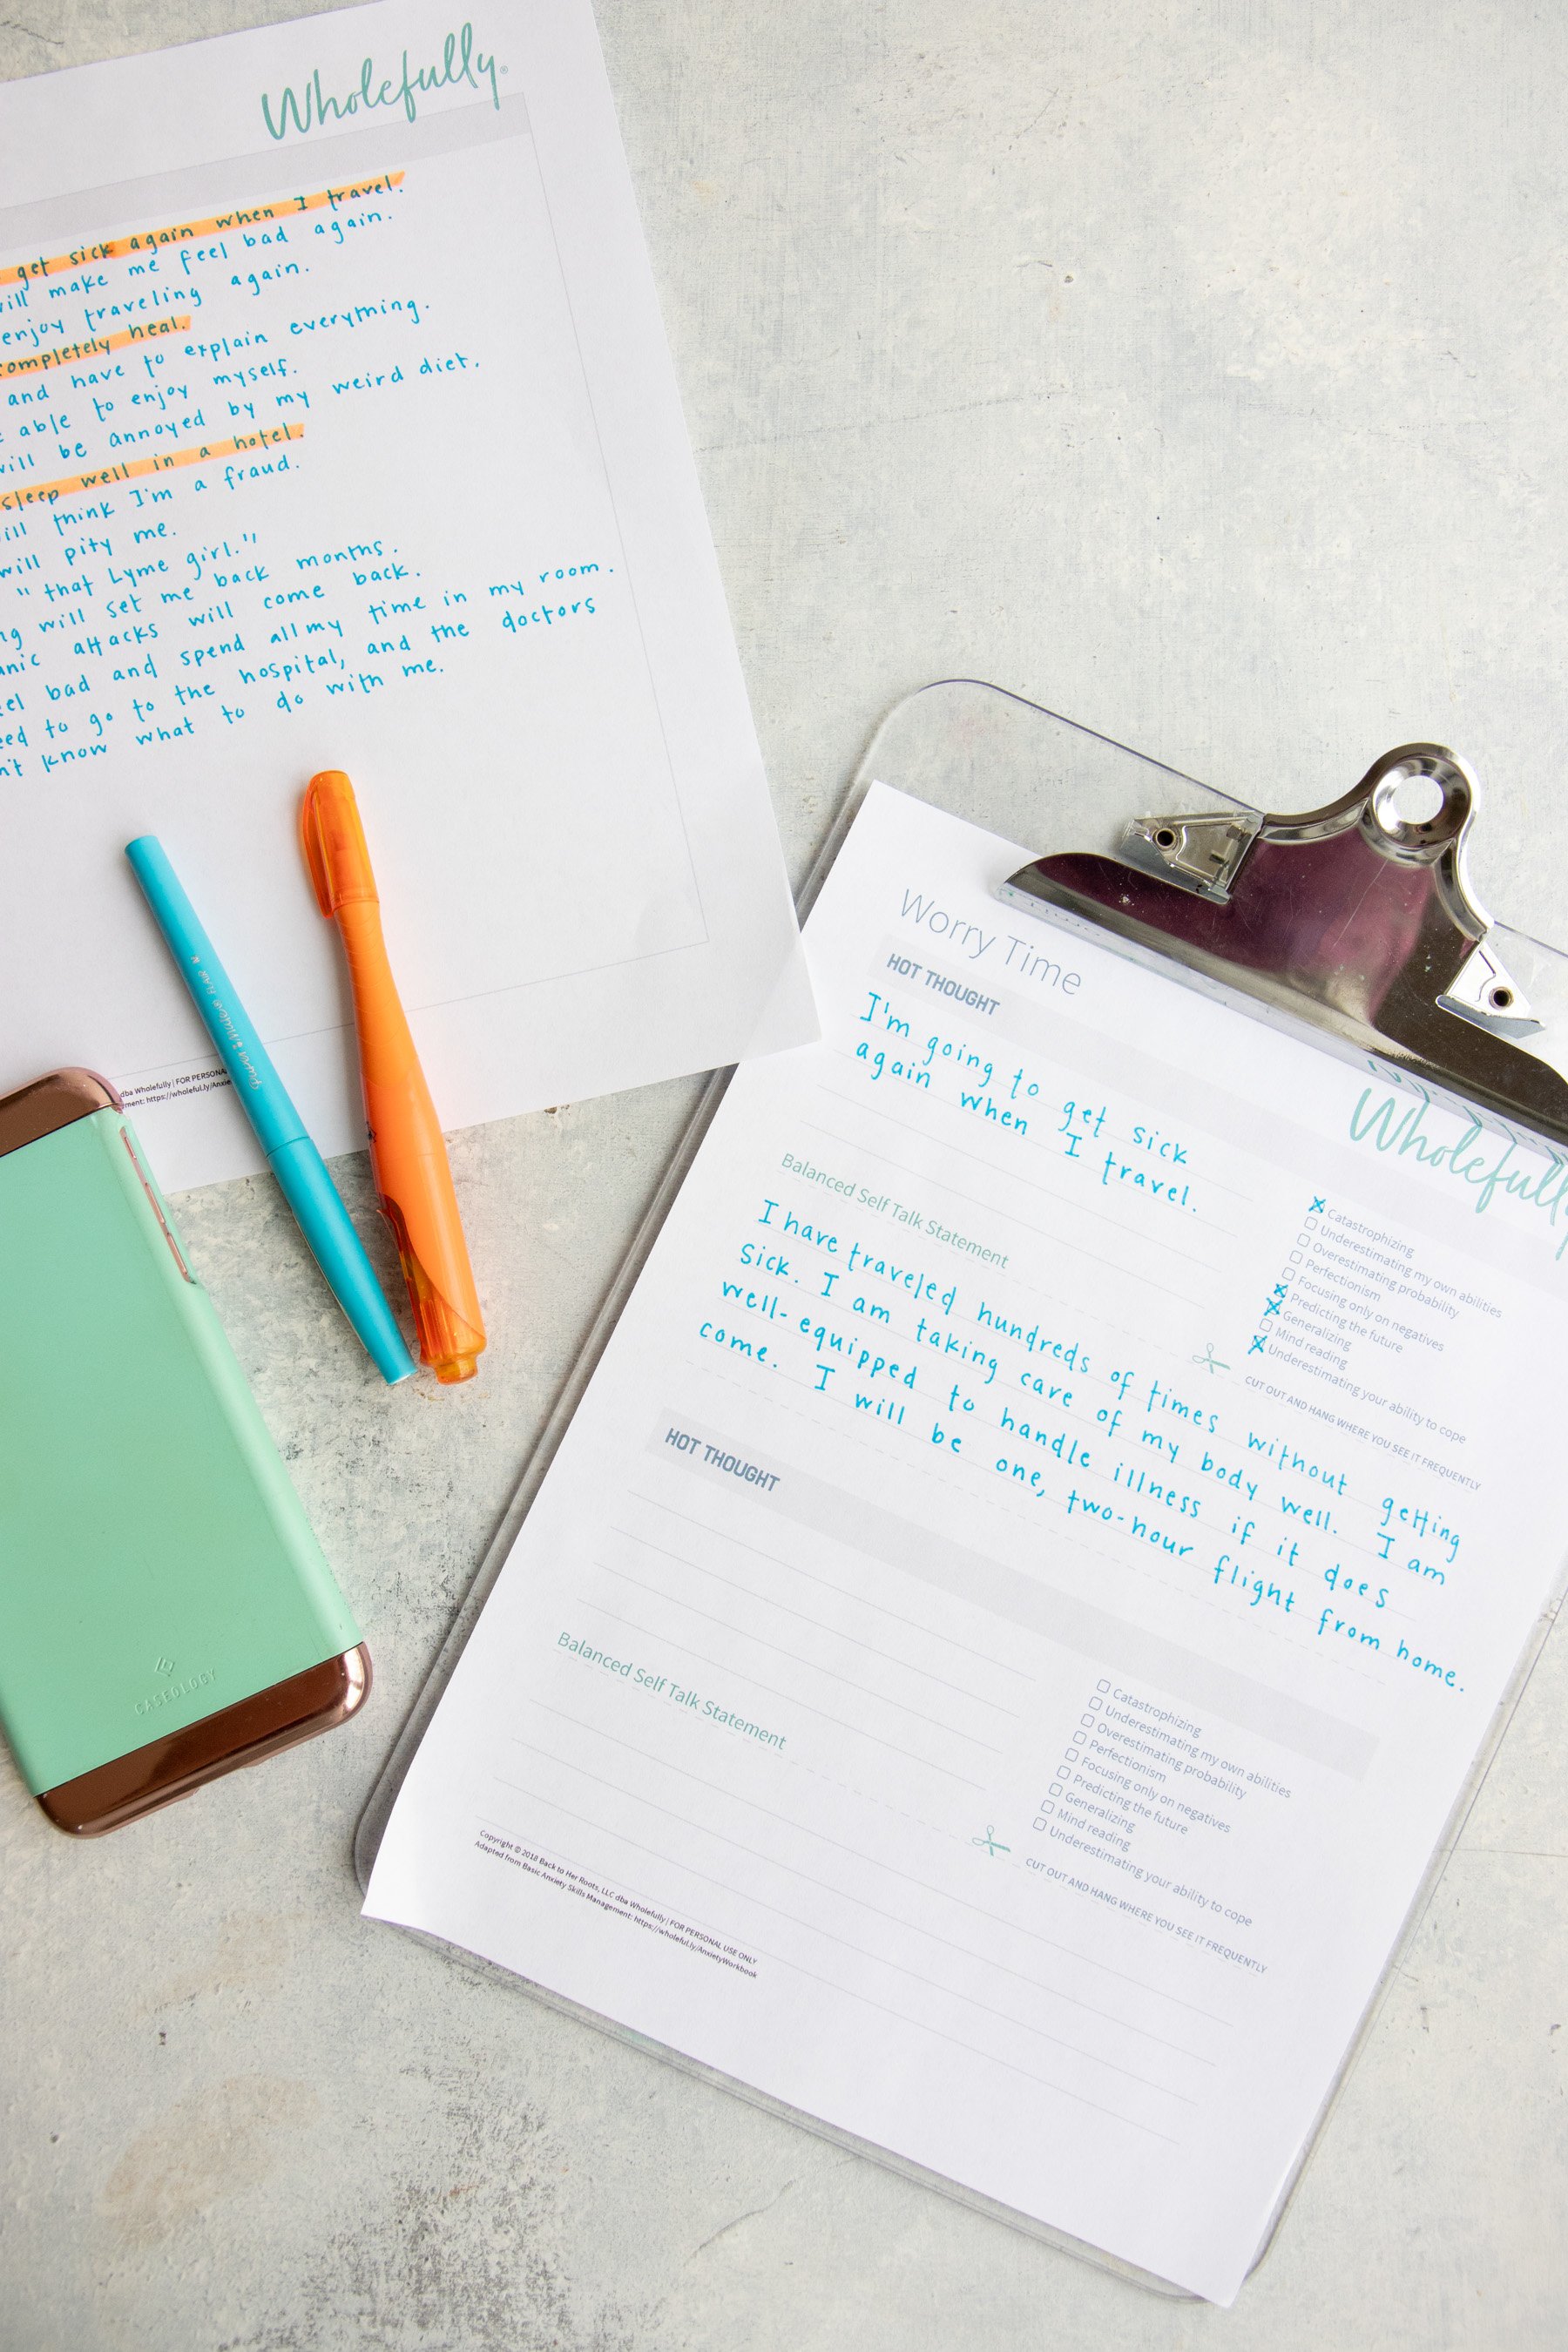 Wholefully®
get sick again when I travel.
will make me feel bad again.
enjoy traveling again.
completely heal.
and have to explain everything.
able to enjoy myself.
will be annoyed by my weird diet.
sleep well in a hotel.
will think I'm a fraud.
will pity me.
"that Lyme girl."
will set me back months.
attacks will come back.
bad and spend all my time in my room.
to go to the hospital, and the doctors
know what to do with me.
dba Wholefully | FOR PERSONAL
https://wholeful.ly/Anxie
PAPER MATE FLAIR M
CASEOLOGY
Worry Time
Wholefully
HOT THOUGHT
I'm going to get sick
again when I travel.
Catastrophizing
Underestimating my own abilities
Overestimating probability
Perfectionism
Focusing only on negatives
Predicting the future
Generalizing
Mind reading
Underestimating your ability to cope
Balanced Self Talk Statement
CUT OUT AND HANG WHERE YOU SEE IT FREQUENTLY
I have traveled hundreds of times without getting
sick. I am taking care of my body well. I am
well-equipped to handle illness if it does
come. I will be one, two-hour flight from home.
HOT THOUGHT
Catastrophizing
Underestimating my own abilities
Overestimating probability
Perfectionism
Focusing only on negatives
Predicting the future
Generalizing
Mind reading
Underestimating your ability to cope
Balanced Self Talk Statement
CUT OUT AND HANG WHERE YOU SEE IT FREQUENTLY
Copyright © 2018 Back to Her Roots, LLC dba Wholefully | FOR PERSONAL USE ONLY
Adapted from Basic Anxiety Skills Management: https://wholeful.ly/AnxietyWorkbook